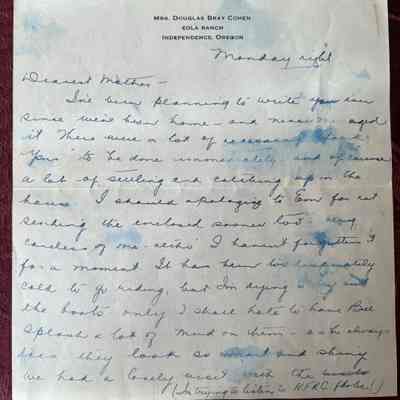 MRS. DOUGLAS BRAY COHEN
EOLA RANCH
INDEPENDENCE, OREGON
Monday night
Dearest Mother -
I've been planning to write you ever
since we've been home - and never
it. There were a lot of necessary "thank
yous" to be done immediately and of course
a lot of settling and catching up in the
house. I should apologize to for not
sending the enclosed sooner too - very
careless of me - who I haven't forgotten it
for a moment. It has been too
cold to go riding, but I'm dying to try out
the boots only I shall hate to have Bee
splash a lot of mud on them - as he always
does they look so smart and shiny
We had a lovely visit with the
(I'm trying to listen to N.B.C. !)